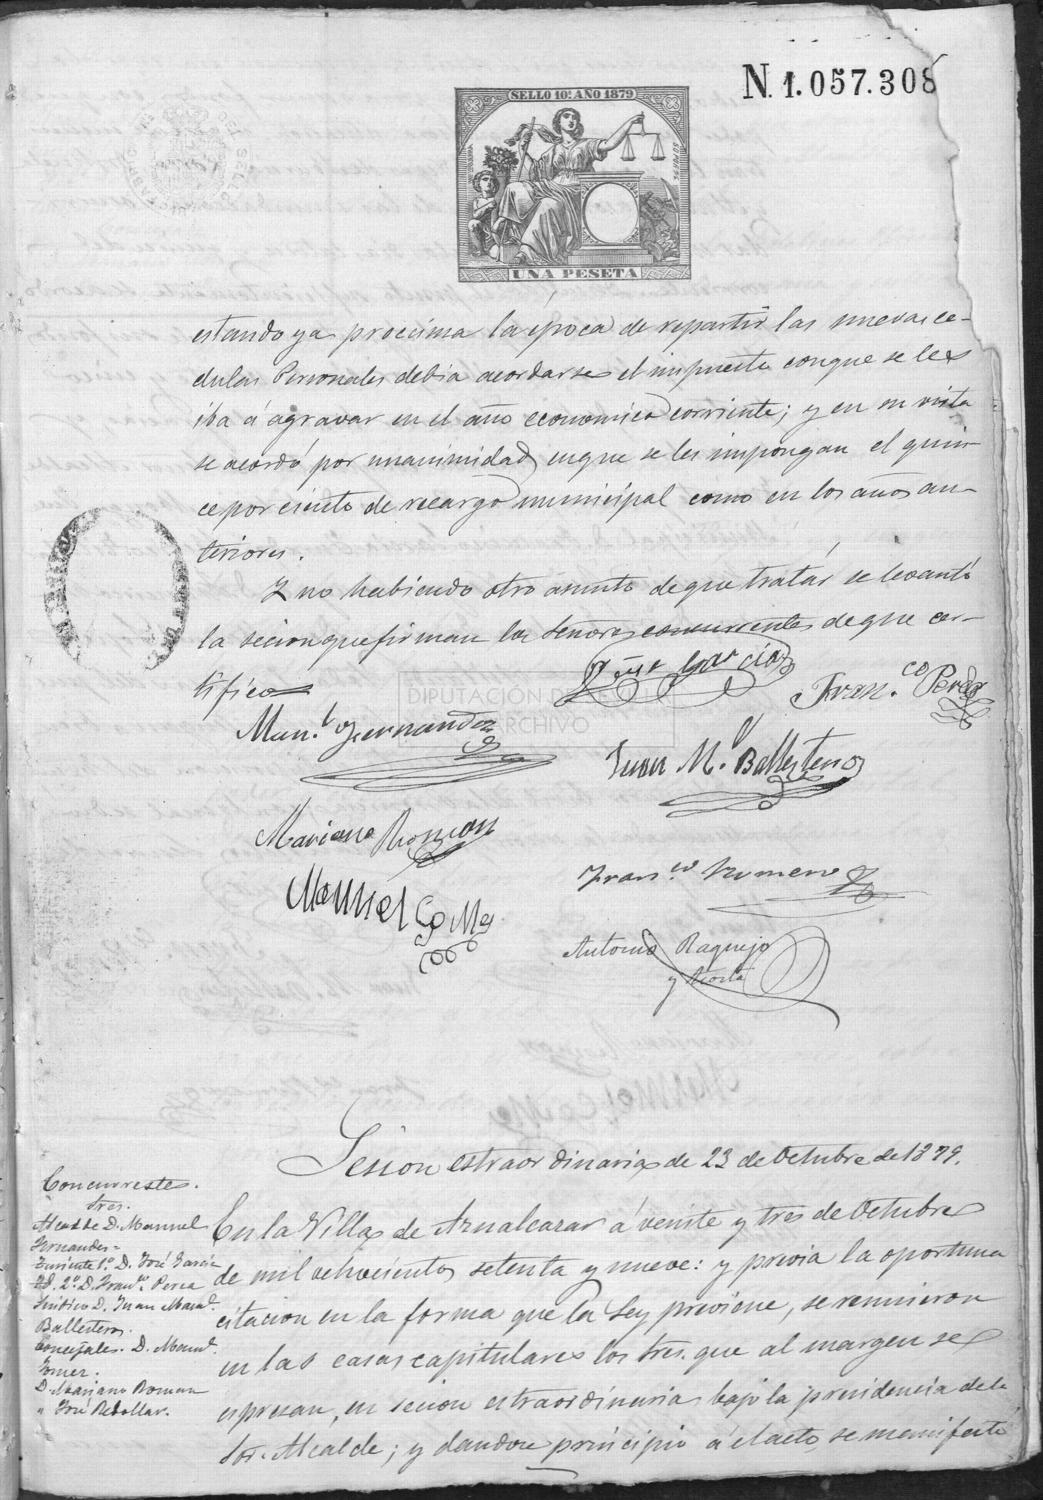 N. 1.057.308
SELLO 10.º AÑO 1879
UNA PESETA
estando ya procsima la época de repartir las nuevas ce-
dulas Personales debia acordarse el impuesto conque se les
iba á agravar en el año economico corriente; y en su vista
se acordó por unanimidad, enque se les impongan el quin-
ce por ciento de recargo municipal como en los años an-
teriores.
Y no habiendo otro asunto de que tratar se levantó
la secion que firman los Señores concurrentes de que cer-
tifico
José Garcia
Fran.co Perea
Man.l Fernandez
Juan M.l Ballesteros
Mariano Roman
Fran.co Romero
Manuel Gomez
Antonio Raquejo
y Acosta
DIPUTACIÓN DE SEVILLA
ARCHIVO
Secion estraordinaria de 23 de Octubre de 1879.
Concurrestes.
tres.
Alcalde D. Manuel
Fernandes=
Teniente 1º. D. José Garcia
Id. 2º. D. Fran.co Perea
Sindico D. Juan Manl.
Ballesteros.
Concejales. D. Manl.
Gomez.
D. Mariano Roman
" José Rebollar.
En la Villa de Aznalcazar á veinte y tres de Octubre
de mil ochocientos setenta y nueve: y previa la oportuna
citacion en la forma que la Ley previene, se reunieron
en las casas capitulares los tres. que al margen se
espresan, en secion estraordinaria bajo la presidencia de el
Sor. Alcalde; y dandose principio á el acto, se manifestó